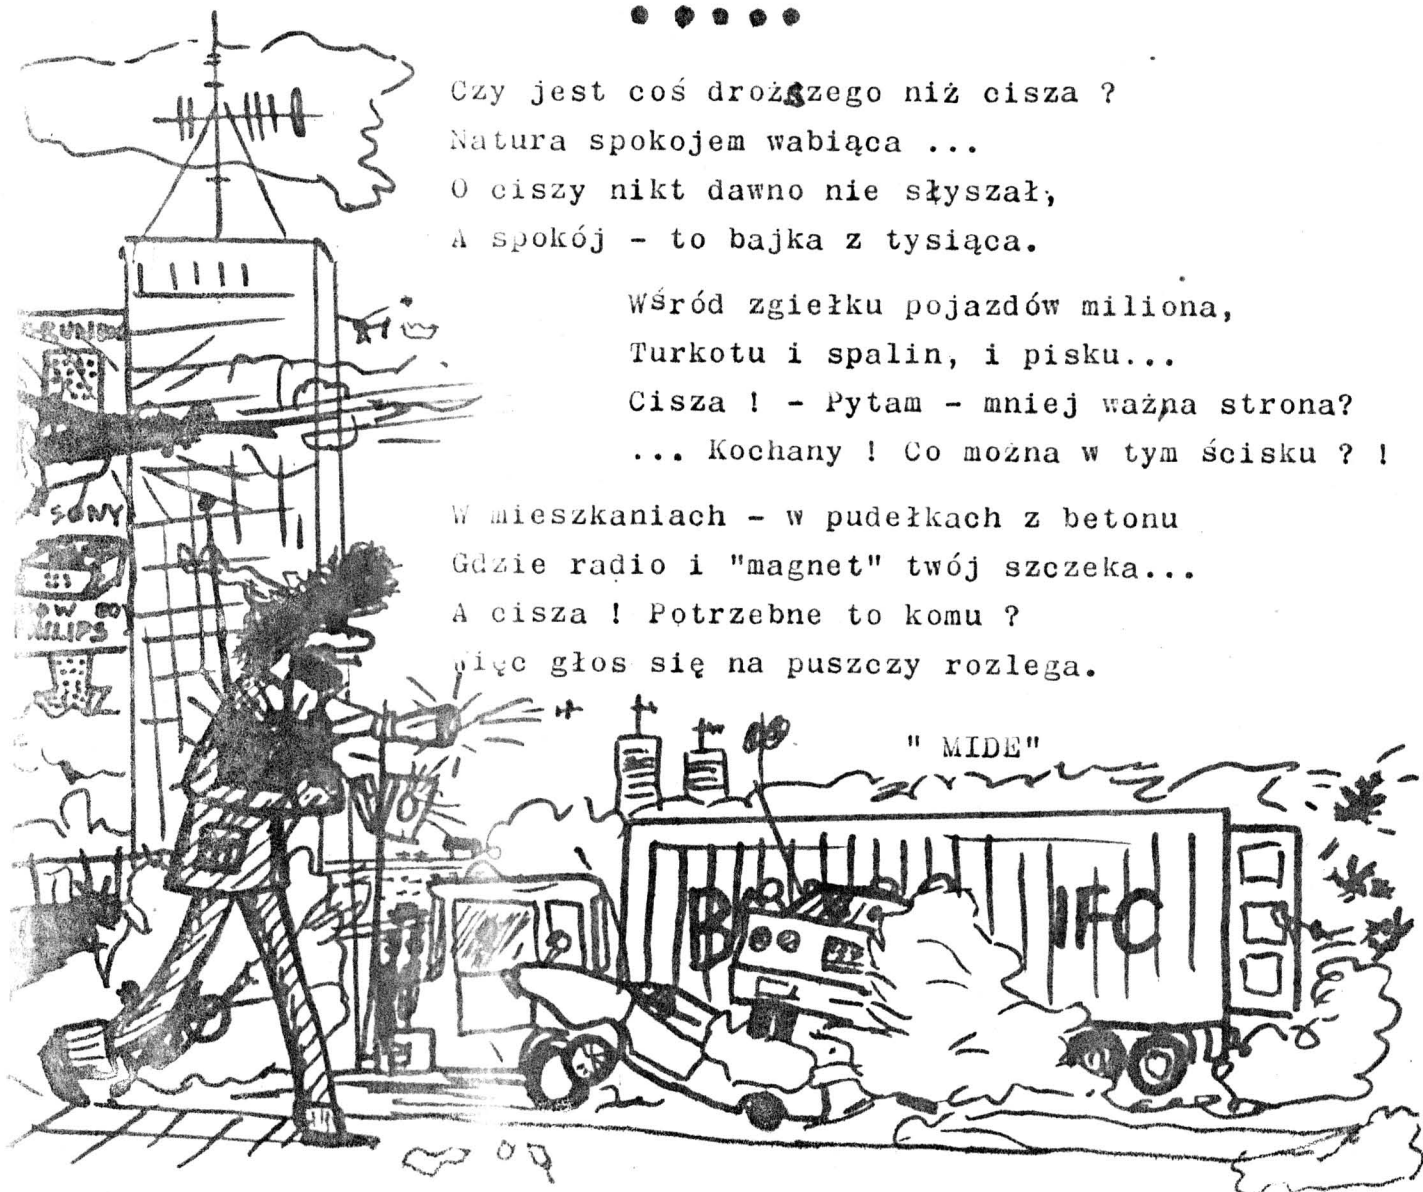 Czy jest coś droższego niż cisza ?
Natura spokojem wabiąca ...
O ciszy nikt dawno nie słyszał,
A spokój - to bajka z tysiąca.
Wśród zgiełku pojazdów miliona,
Turkotu i spalin, i pisku...
Cisza ! - Pytam - mniej ważna strona?
... Kochany ! Co można w tym ścisku ? !
W mieszkaniach - w pudełkach z betonu
Gdzie radio i "magnet" twój szczeka...
A cisza ! Potrzebne to komu ?
Więc głos się na puszczy rozlega.
" MIDE"
SONY
PHILIPS